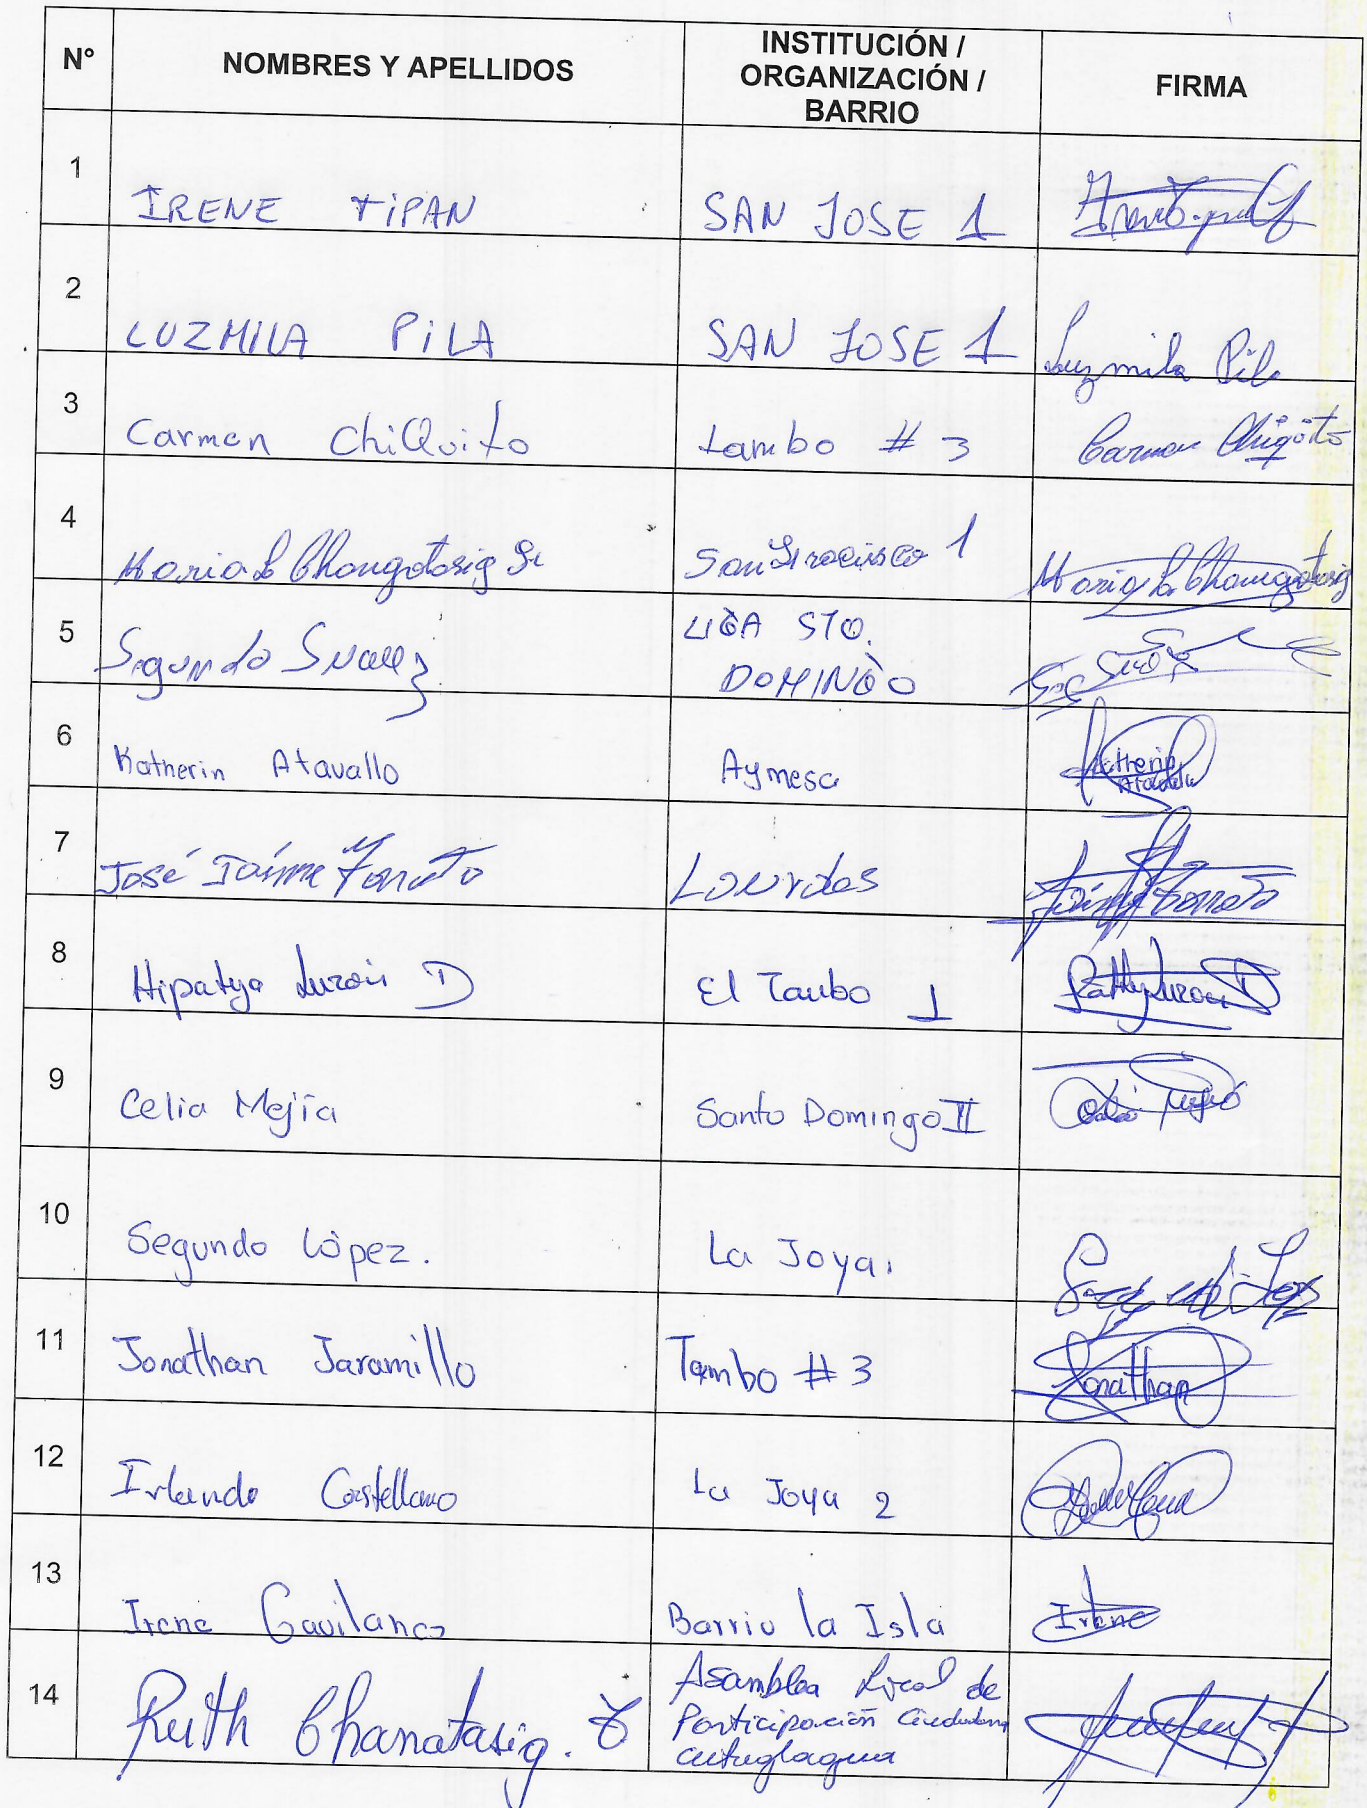 N° NOMBRES Y APELLIDOS INSTITUCIÓN / ORGANIZACIÓN / BARRIO FIRMA
1 IRENE TIPAN SAN JOSE 1
2 LUZMILA PILA SAN JOSE 1 Luzmila Pila
3 Carmen ChiQuito tambo # 3 Carmen Chiquito
4 Maria L Changotasig San Francisco 1 Maria L. Changotasig
5 Segundo Suarez LIGA STO. DOMINGO
6 Katherin Atavallo Aymesa Katherin Atavallo
7 José Jaime Lourdes Jaime
8 Hipatya Luzon D El Tambo 1
9 Celia Mejía Santo Domingo II Celia Mejía
10 Segundo López. La Joya. Segundo López
11 Jonathan Jaramillo Tambo # 3 Jonathan
12 Irlanda Castellano La Joya 2
13 Irene Gavilanes Barrio la Isla Irene
14 Ruth Chanatasig. Asamblea Local de
Participación Ciudadana
Cutuglagua